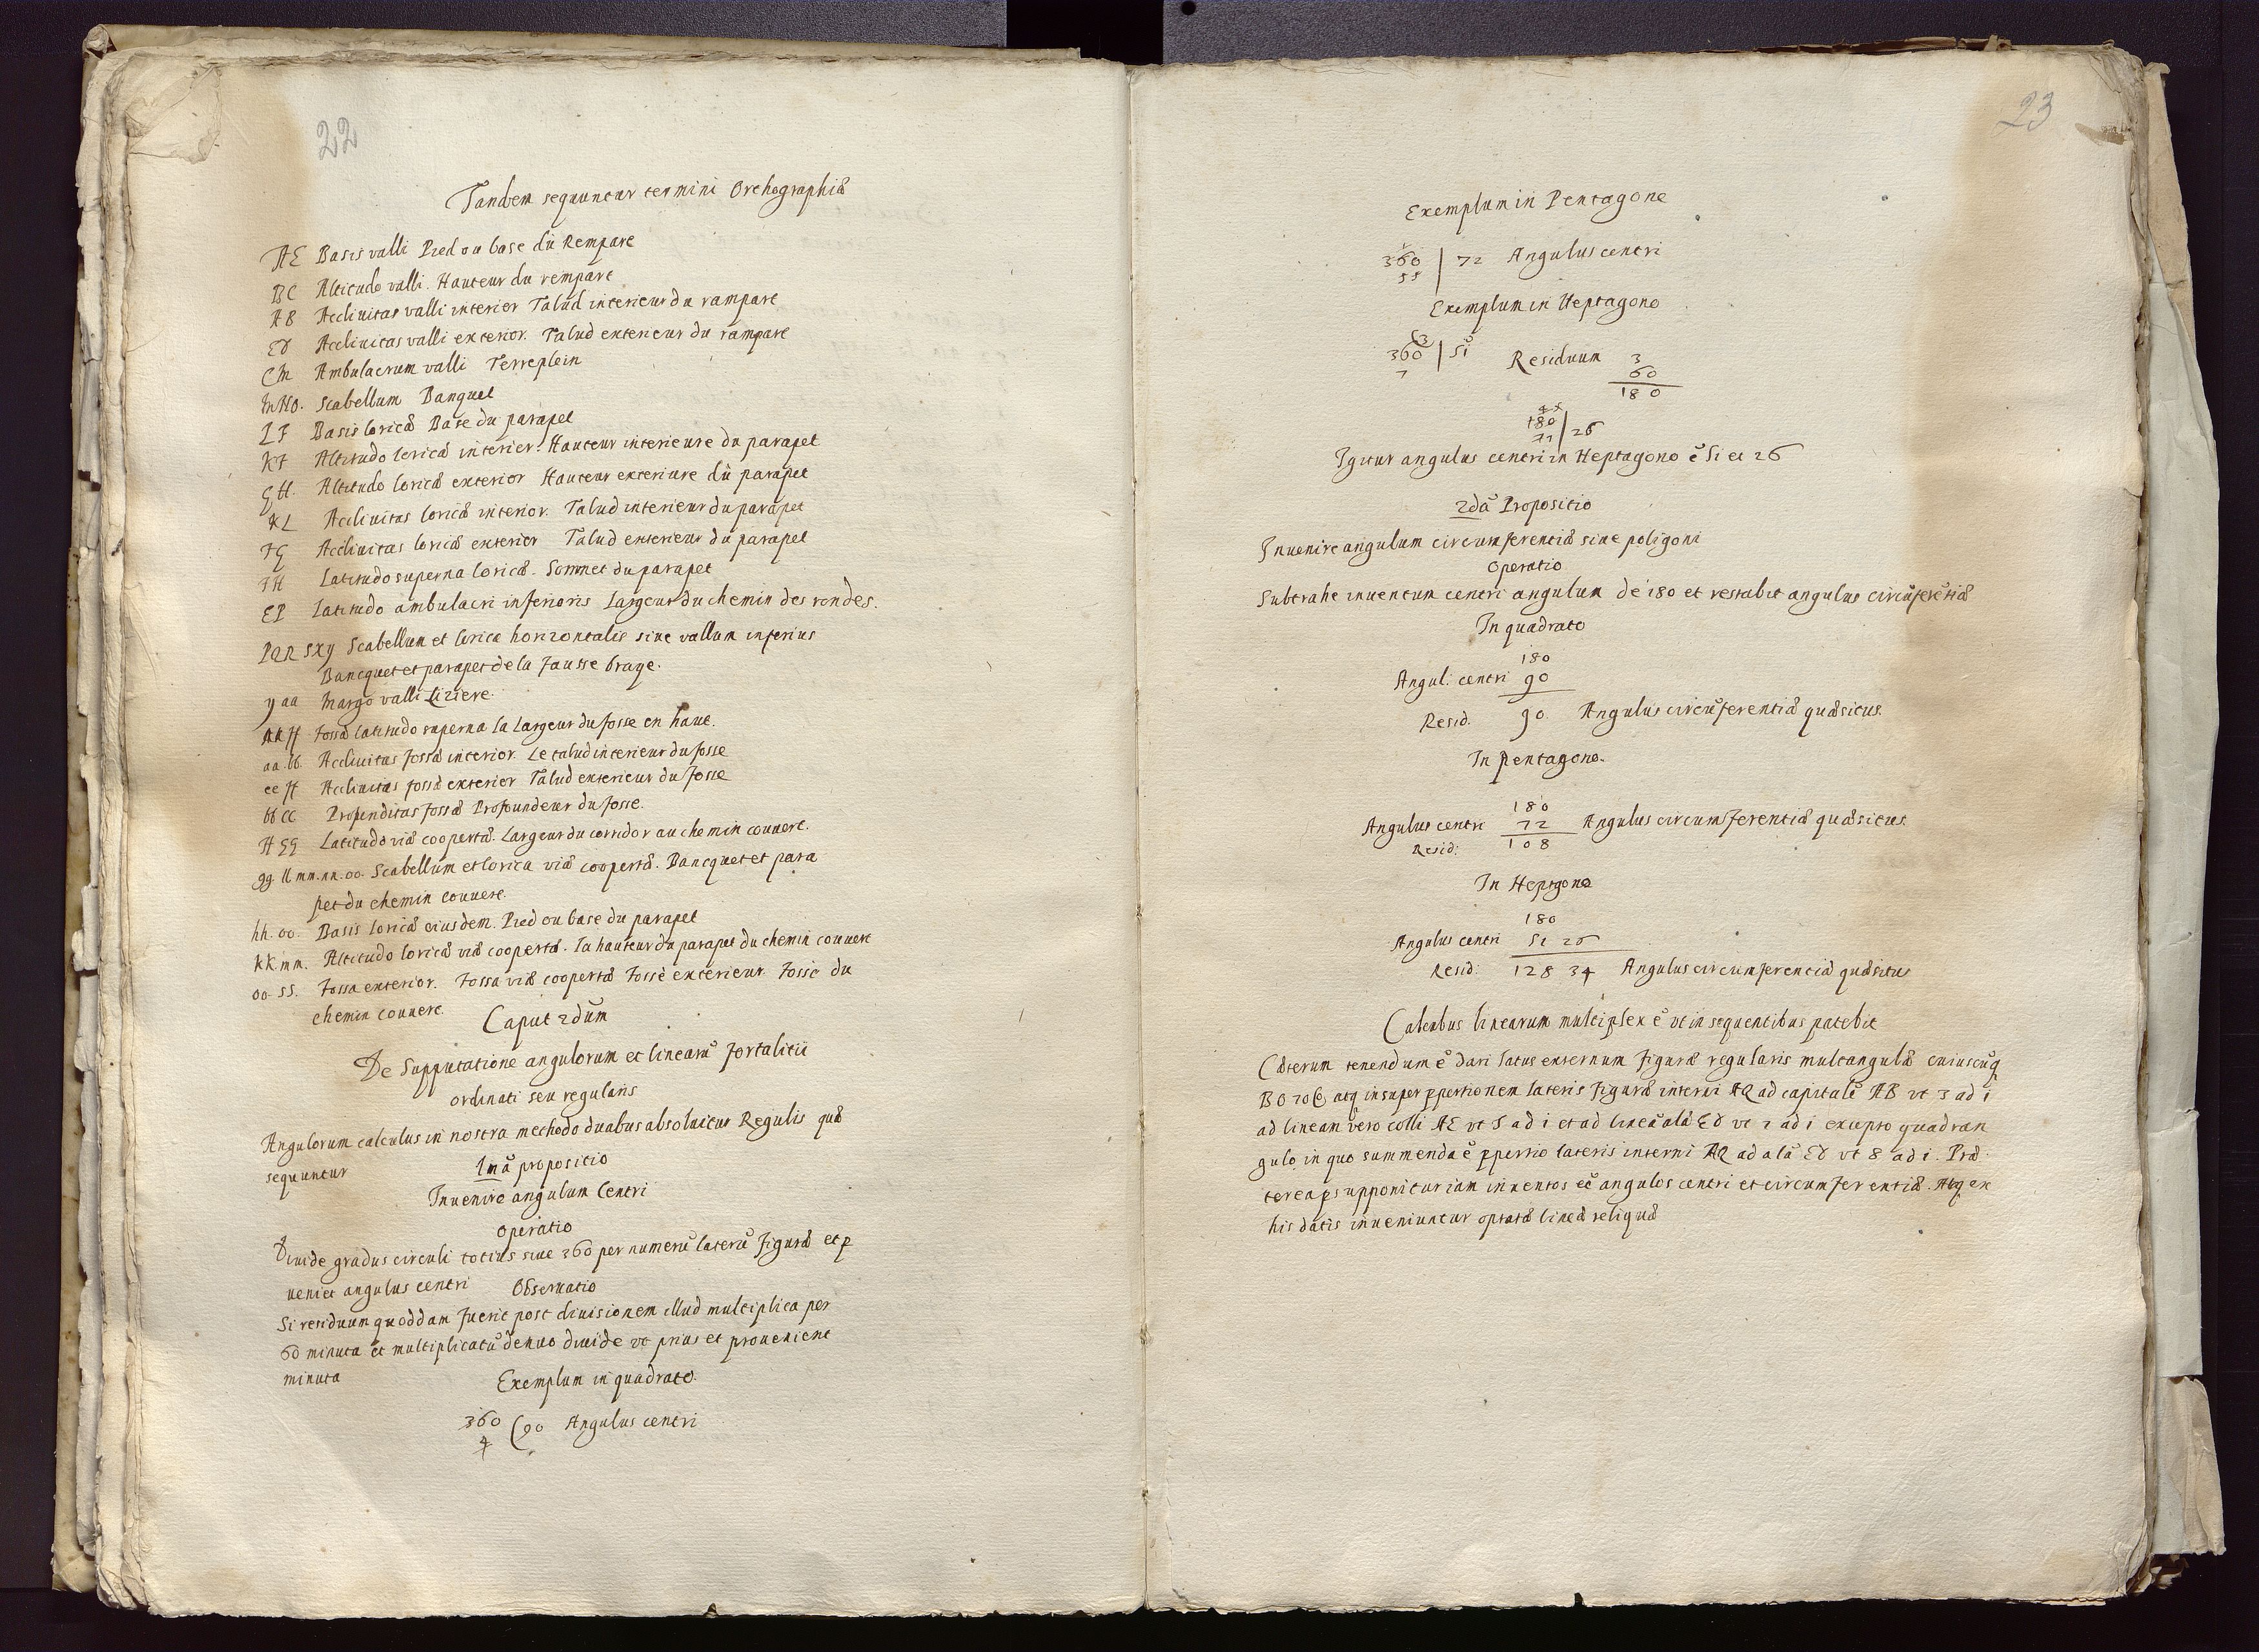 22
Tandem sequuntur termini Orthographiæ
AE Basis valli Pied ou base dü Rempare
BC Altitudo valli. Hauteur du rempare
AB Accliuitas valli interior Talud interieur du rampare
ED Accliuitas valli exterior. Talud exterieur du rampare
CM Ambulacrum valli Terreplein
MNO. Scabellum Banquet
LF Basis loricæ Base du parapet
KF Altitudo loricæ interior. Hauteur interieure du parapet
GH. Altitudo loricæ exterior Hauteur exteriure dü parapet
KL Accliuitas loricæ interior. Talud interieur du parapet
FG Accliuitas loricæ exterior Talud exterieur du parapet
FH Latitudo superna loricæ. Sommet du parapet
EP Latitudo ambulacri inferioris Largeur du chemin des rondes.
PQR SXY Scabellum et lorica horizontalis siue vallum inferius
Bancquet et parapet de la fausse braye.
y aa Margo valli Liziere.
Fossæ latitudo superna La Largeur du fosse en haut.
aa. bb. Accliuitas fossæ interior. Le talud interieur du fosse
ee ff Accliuitas fossæ exterior Talud exterieur du fosse
bb cc Profunditas fossæ Profoundeur du fosse.
ff gg Latitudo viæ coopertæ. Largeur du corridor au chemin couuert.
gg. ll mm. nn. oo. Scabellum et lorica viæ coopertæ. Bancquet et para
pet du chemin couuert.
hh. oo. Basis loricæ eiusdem. Pied ou base du parapet
kk. mm. Altitudo loricæ viæ coopertæ. La hauteur du parapet du chemin couuert
oo. ss. Fossa exterior. Fossa viæ coopertæ Fossè exterieur. Fosse du
chemin couuert.
Caput 2dũm
De Supputatione angulorum et linearũ fortalitii
ordinati seu regularis
Angulorum calculus in nostra methodo duabus absoluitur Regulis quæ
sequuntur
1mã propositio
Inuenire angulum Centri
Operatio
Diuide gradus circuli totius siue 360 per numerũ laterũ figuræ et p
ueniet angulus centri Obseruatio
Si residuum quoddam fuerit post diuisionem illud multiplica per
60 minuta et multiplicatũ denuo diuide vt prius et prouenient
minuta
Exemplum in quadrato.
360
4 (90 Angulus centri
23
Exemplum in Pentagone
1
360 | 72 Angulus centri
55
Exemplum in Heptagono
3
360 | 51 Residuum 3
7 60
180
4
180 | 25
77
Igitur angulus centri in Heptagono ẽ 51 et 26
2dã Propositio
Inuenire angulum circumferentiæ siue poligoni
Operatio
Subtrahe inuentum centri angulum de 180 et restabit angulus circũferẽtiæ
In quadrato
180
Angul. centri 90
Resid. 90. Angulus circũferentiæ quæsitus.
In pentagono.
180
Angulus centri 72 Angulus circumferentiæ quæsitus.
Resid: 108
In Heptgono
180
Angulus centri 51 26
Resid: 128 34 Angulus circumferentiæ quæsitus
Calculus linearum multiplex ẽ vt in sequentibus patebit
Cæterum tenendum ẽ dari latus externum figuræ regularis multangulæ cuiuscũq
BO atq insuper ppertionem lateris figuræ interni AQ ad capitalẽ AB vt 3 ad i
ad lineam vero colli AE vt 5 ad i et ad lineã alã ED vt ad i excepto quadran
gulo in quo summenda ẽ ppertio lateris interni AQ ad alã ED vt 8 ad i. Præ
terea psupponitur iam inuentos ẽẽ angulos centri et circumferentiæ. Atq ex
his datis inueniuntur optatæ lineæ reliquæ